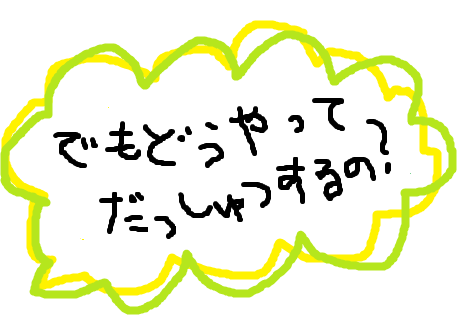 でもどうやって
だっしゅつするの?